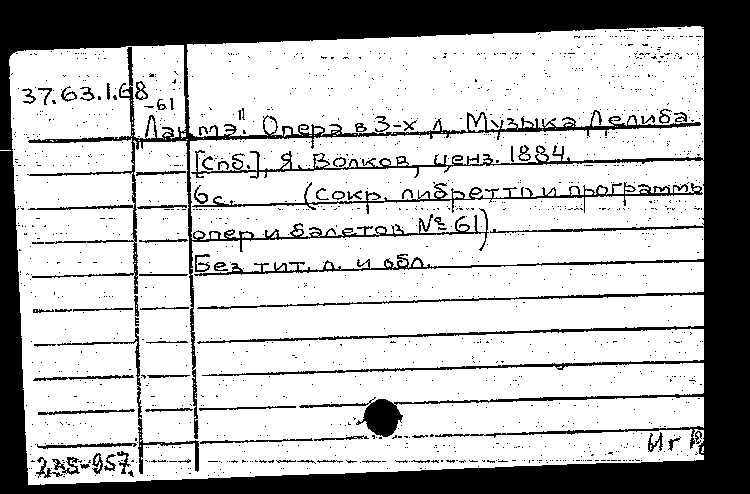 37.63.1.68
-61
"Лакмэ". Опера в 3-х д. Музыка Делиба.
[Спб.], Я. Волков, ценз. 1884.
6с. (Сокр. либретто и программы
опер и балетов № 61).
Без тит. л. и обл.
235-957.